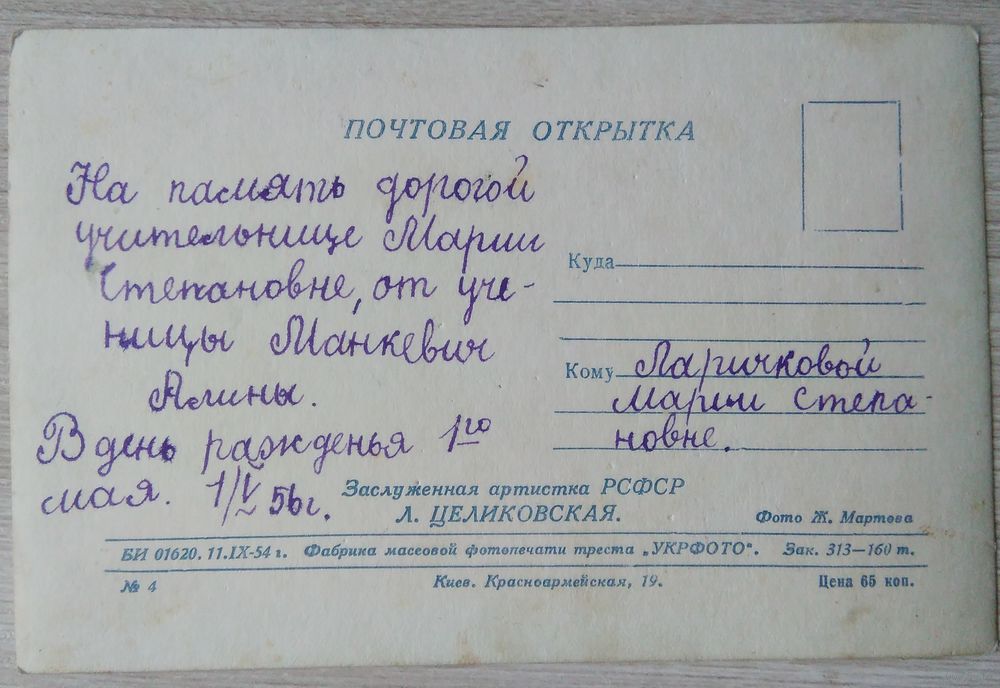 ПОЧТОВАЯ ОТКРЫТКА
На память дорогой
учительнице Марии
Степановне, от уче-
ницы Манкевич
Алины.
В день ражденья 1го
мая. 1/V 56 г.
Куда
Кому Ларичковой
Марии Степа-
новне.
Заслуженная артистка РСФСР
Л. ЦЕЛИКОВСКАЯ.
Фото Ж. Мартова
БИ 01620. 11.IX-54 г. Фабрика массовой фотопечати треста „УКРФОТО“. Зак. 313—160 т.
№ 4 Киев. Красноармейская, 19. Цена 65 коп.